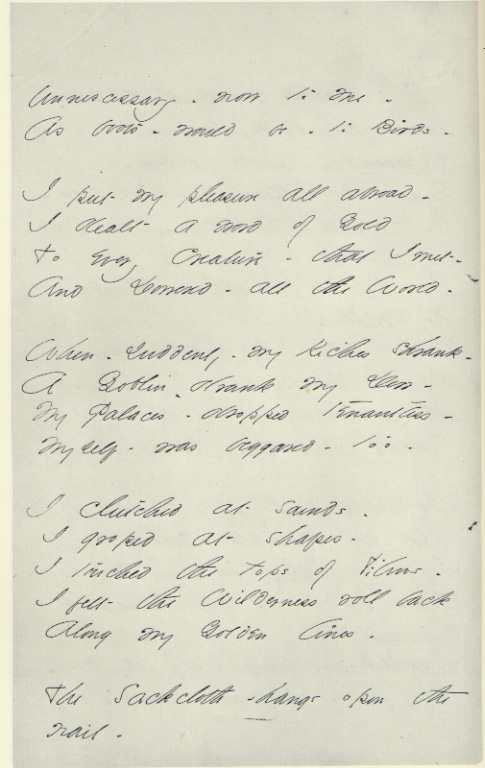 Unnecessary - now to me -
As boots - would be - to Birds -
I put my pleasure all abroad -
I dealt a word of Gold
To every Creature - that I met -
And Dowered - all the World -
When - suddenly - my Riches shrank -
A Goblin - drank my Dew -
My Palaces - dropped tenantless -
Myself - was beggared - too -
I clutched at sounds -
I groped at shapes -
I touched the tops of Films -
I felt the Wilderness roll back
Along my Golden lines -
The Sackcloth - hangs upon the
nail -